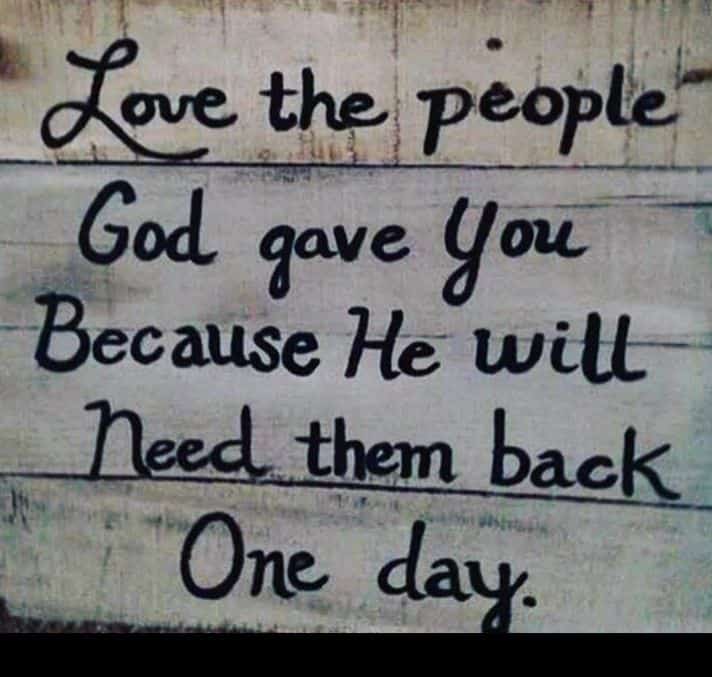 Love the people
God gave You
Because He will
Need them back
One day.